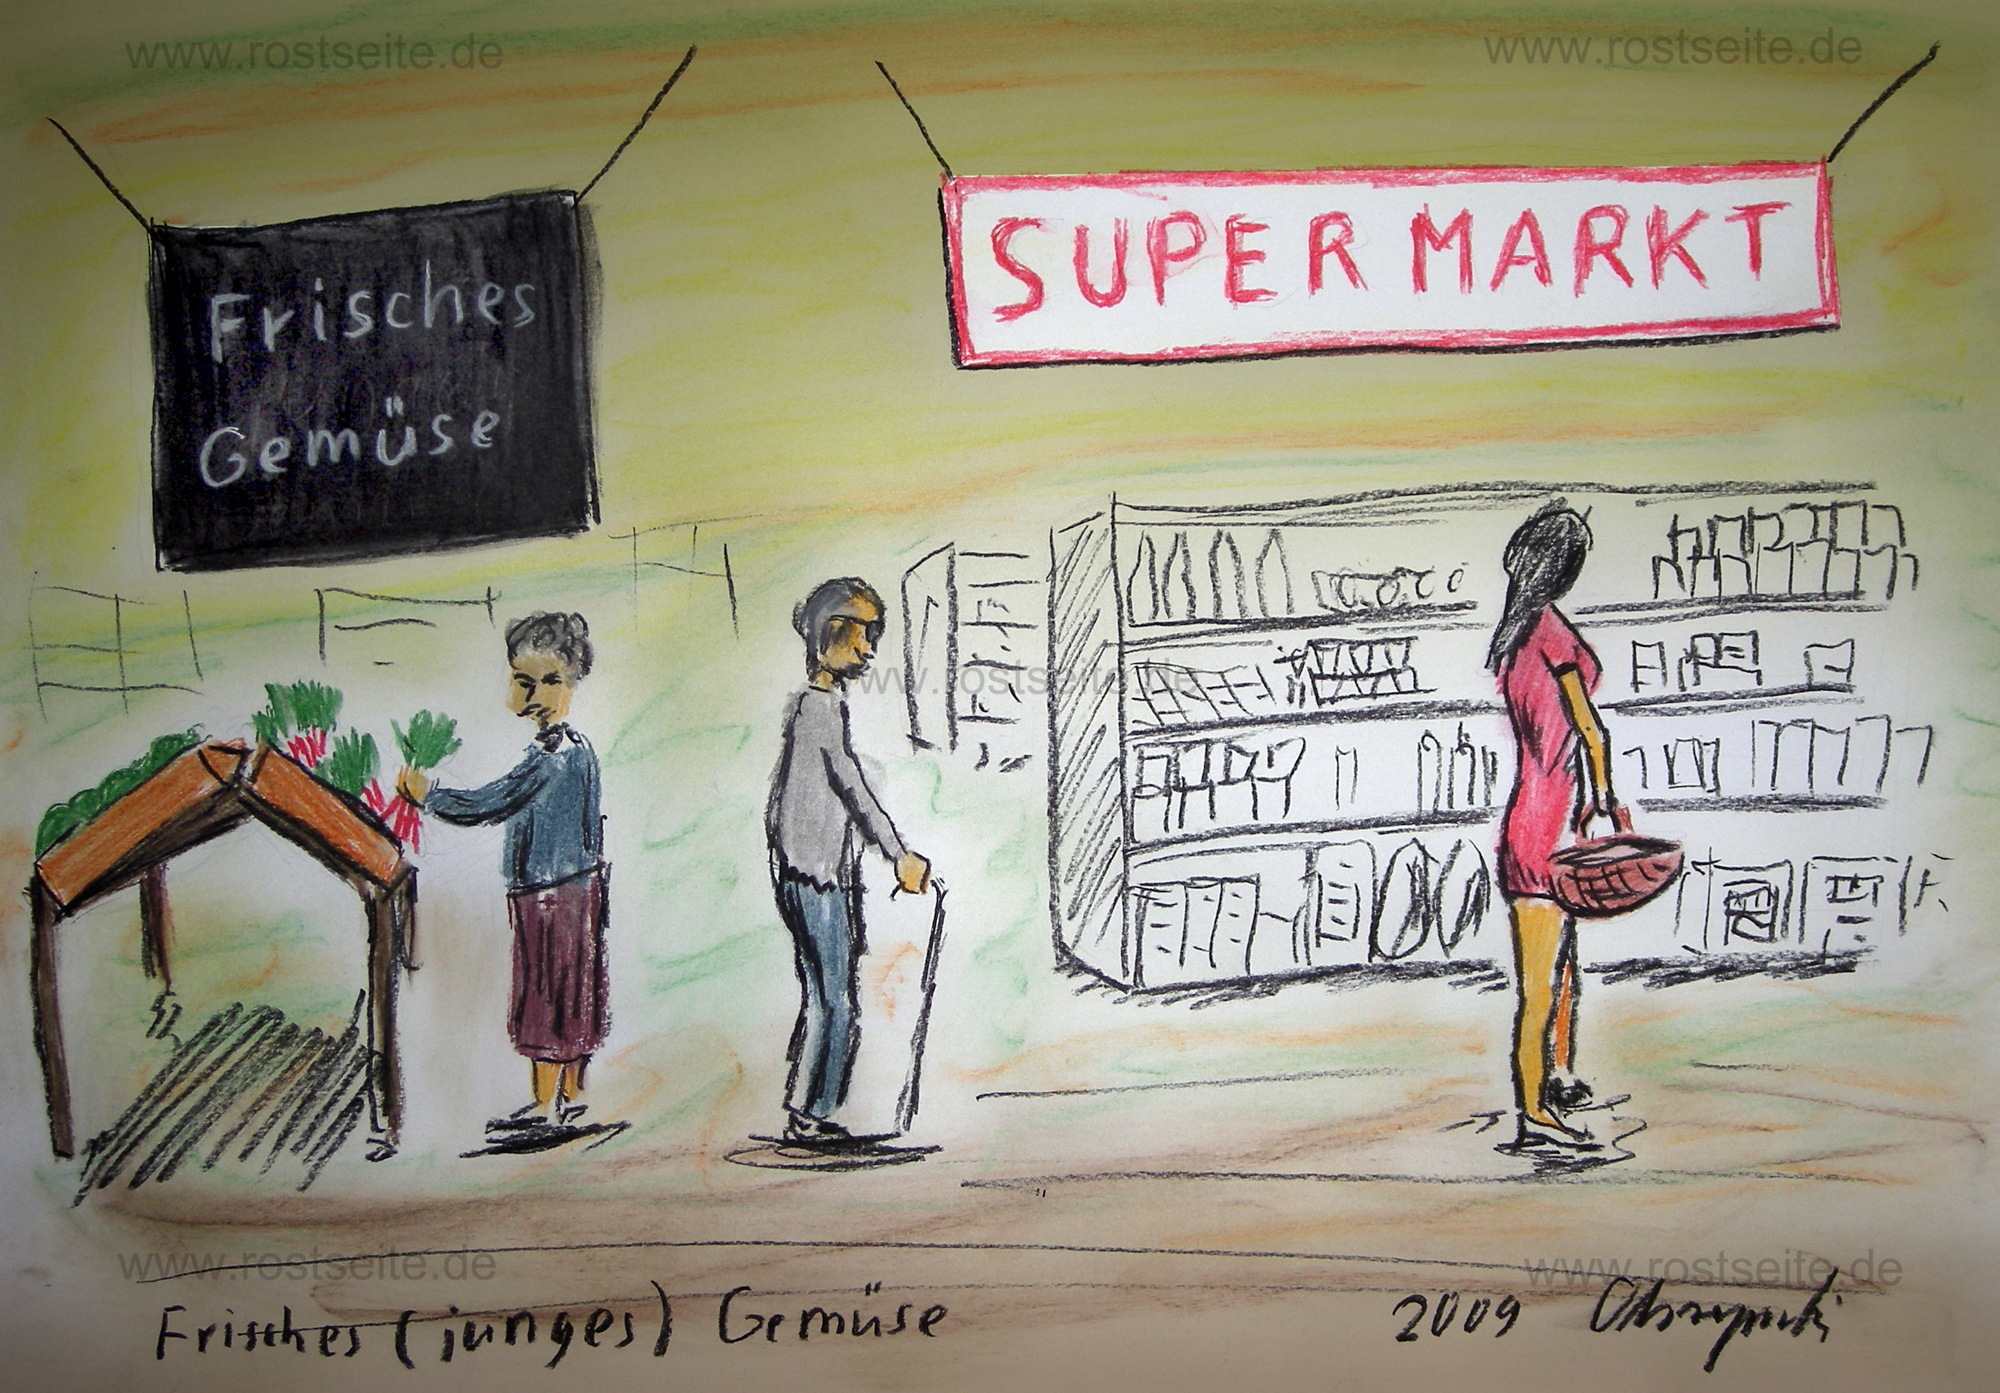 www.rostseite.de
www.rostseite.de
Frisches
Gemüse
SUPER MARKT
www.rostseite.de
www.rostseite.de
www.rostseite.de
Frisches (junges) Gemüse
2009